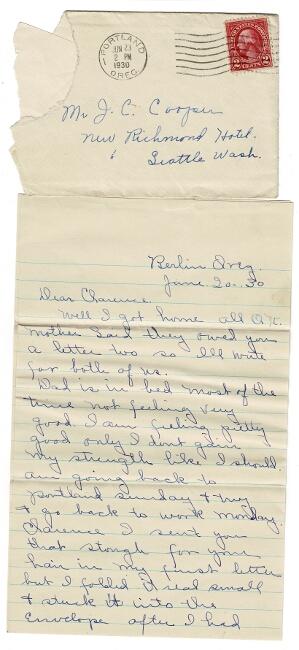 PORTLAND
JUN 23
2 PM
1930
OREG.
2 CENTS 2
Mr J. C. Cooper
New Richmond Hotel.
Seattle Wash.
Berlin Oreg
June 20. 30
Dear Clarence.
Well I got home all O.K.
mother said they owed you
a letter two so Ill write
for both of us.
Dad is in bed most of the
time not feeling very
good I am feeling pretty
good only I dont gain
my strength like I should
am going back to
portland sunday & try
& go back to work monday.
Clarence I sent you
that stough for your
hair in my first letter
but I folded it real small
& stuck it into the
envelope after I had